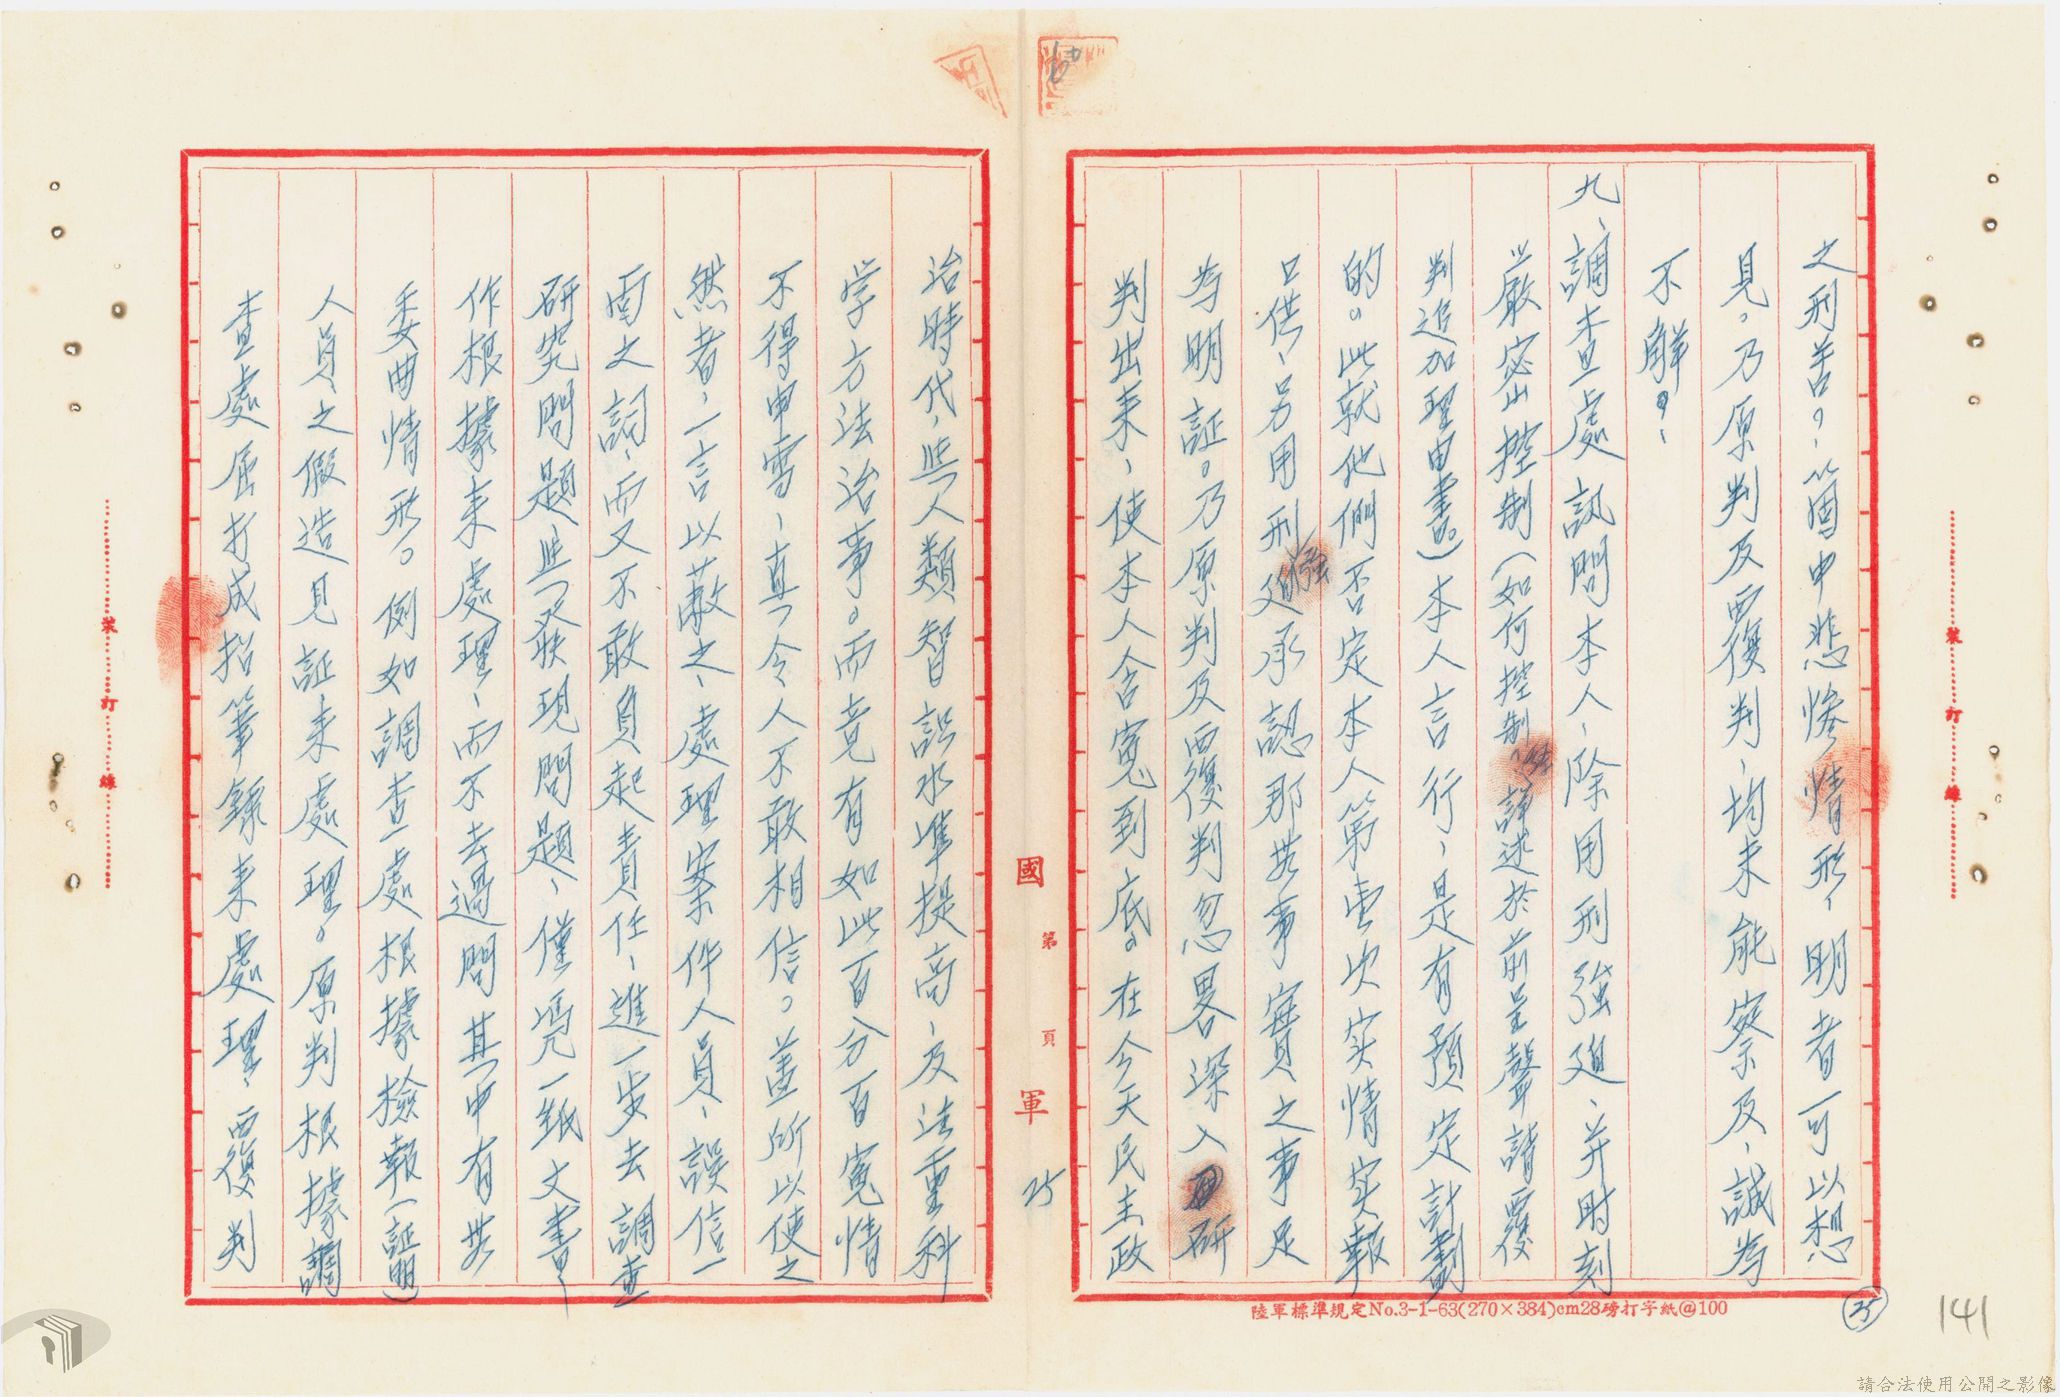 之刑善。、箇中悲慘情形、明者可以想
見。乃原判及覆判、均未能察及、誠為
不解。、
九、調查處訊問本人、除用刑強迫、并時刻
嚴密控制（如何控制、詳述於前呈聲請覆
判追加理由書。）本人言行、是有預定計劃
的。此就他們否定本人第壹次实情实報
口供、另用刑強迫承認那些事實之事足
為明証。乃原判及覆判忽畧深入研
判出来、使本人含寃到底。在今天民主政
治時代、與人類智識水準提高、及法重科
学方法治事。而竟有如此百分百寃情
不得申雪、真令人不敢相信。蓋所以使之
然者、一言以蔽之、處理案件人員、誤信一
面之詞、而又不敢負起責任、進一步去調查
研究問題與發現問題、僅凭一纸文書、
作根據来處理、而不去過問其中有些
委曲情形。例如調查處根據檢報（証明）
人員之假造見証来處理。原判根據調
查處屈打成招筆錄来處理、覆判
國 軍
第 頁
25
裝 訂 線
裝 訂 線
陸軍標準規定No.3-1-63(270×384)cm28磅打字紙@100
25
141
請合法使用公開之影像